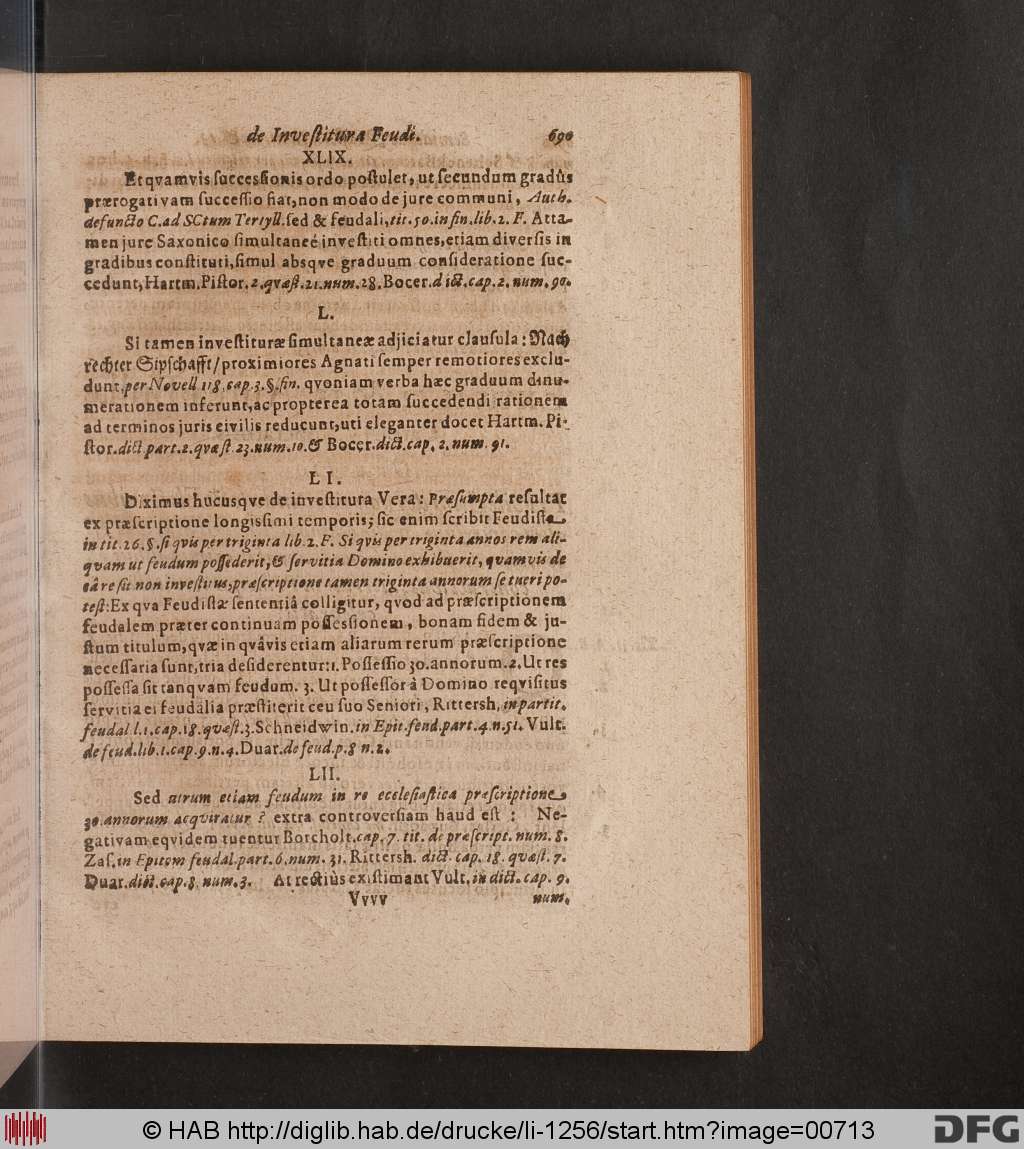 de Inveſtitura Feudi. 690
XLIX.
Et qvamvis ſucceſſionis ordo poſtulet, ut ſecundum gradûs
prærogativam ſucceſſio fiat, non modo de jure communi, Auth.
defuncto C. ad SCtum Tertyll. ſed & feudali, tit. 50. in fin. lib. 2. F. Atta-
men jure Saxonico ſimultaneé inveſtiti omnes, etiam diverſis in
gradibus conſtituti, ſimul absqve graduum conſideratione ſuc-
cedunt, Hartm. Piſtor. 2. quæſt. 21. num. 28. Bocer. dict. cap. 2. num. 90.
L.
Si tamen inveſtituræ ſimultaneæ adjiciatur clauſula: Nach
rechter Sipſchafft/ proximiores Agnati ſemper remotiores exclu-
dunt, per Novell 118. cap. 3. §. fin. qvoniam verba hæc graduum dinu-
merationem inferunt, ac propterea totam ſuccedendi rationem
ad terminos juris civilis reducunt, uti eleganter docet Hartm. Pi-
ſtor. dict. part. 2. quæſt 23. num. 10. & Bocer. dict. cap. 2. num. 91.
LI.
Diximus hucusqve de inveſtitura Vera: Præſumpta reſultat
ex præſcriptione longisſimi temporis; ſic enim ſcribit Feudiſta
in tit. 26. §. ſi qvis per triginta lib. 2. F. Si qvis per triginta annos rem ali-
quam ut feudum poſſederit, & ſervitia Domino exhibuerit, quamvis de
eâ re ſit non inveſtitus, præſcriptione tamen triginta annorum ſe tueri po-
teſt: Ex qva Feudiſtæ ſententiâ colligitur, qvod ad præſcriptionem
feudalem præter continuam poſſesſionem, bonam fidem & ju-
ſtum titulum, qvæ in qvâvis etiam aliarum rerum præſcriptione
neceſſaria ſunt, tria deſiderentur: 1. Poſſeſſio 30. annorum. 2. Ut res
poſſeſſa ſit tanqvam feudum. 3. Ut poſſeſſor à Domino reqviſitus
ſervitia ei feudalia præſtiterit ceu ſuo Seniori, Rittersh. in partit.
feudal l. 1. cap. 18. quæſt. 3. Schneidwin. in Epit. feud. part. 4. n. 51. Vult.
de feud. lib. 1. cap. 9. n. 4. Duar. de feud. p. 8 n. 2.
LII.
Sed utrum etiam feudum in re eccleſiaſtica præſcriptione
30. annorum acquiratur? extra controverſiam haud eſt: Ne-
gativam eqvidem tuentur Borcholt. cap. 7. tit. de præſcript. num. 8.
Zaſ. in Epitom feudal. part. 6. num. 31. Rittersh. dict. cap. 18. quæſt. 7.
Duar. dict. cap. 8. num. 3. At rectiùs exiſtimant Vult. in dict. cap. 9.
Vvvv num.
© HAB http://diglib.hab.de/drucke/li-1256/start.htm?image=00713
DFG